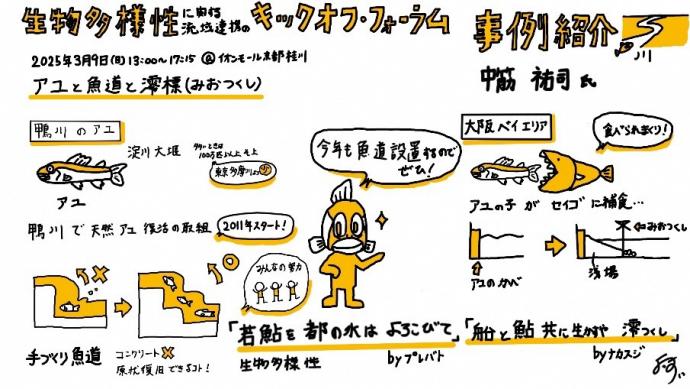 生物多様性に関する流域連携のキックオフ・フォーラム
2025年3月9日(日)13:00〜17:15 @イオンモール京都桂川
アユと魚道と澪標(みおつくし)
事例紹介
川
中筋 祐司 氏
鴨川のアユ
アユ
淀川大堰
多いときは
100万匹以上そ上
東京多摩川より少
鴨川で天然アユ復活の取組
2011年スタート!
手づくり魚道
コンクリート×
原状復旧できるコト!
みんなの努力
今年も魚道設置するのでぜひ!
「若鮎を都の水はよろこびて」
生物多様性 byプレバト
大阪ベイエリア
食べられまくり!
アユの子がセイゴに捕食…
アユのカベ
浅場
みおつくし
「船と鮎共に生かすや澪つくし」
byナカスジ